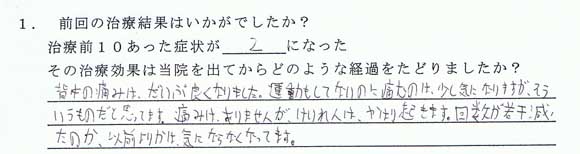 1. 前回の治療結果はいかがでしたか？
治療前10あった症状が 2 になった
その治療効果は当院を出てからどのような経過をたどりましたか？
背中の痛みは、だいぶ良くなりました。運動もしてないのに痛むのは、少し気になりますが、そう
いうものだと思ってます。痛みはありませんが、けいれんは、やはり起きます。回数が若干減っ
たのか、以前よりかは、気にならなくなってます。